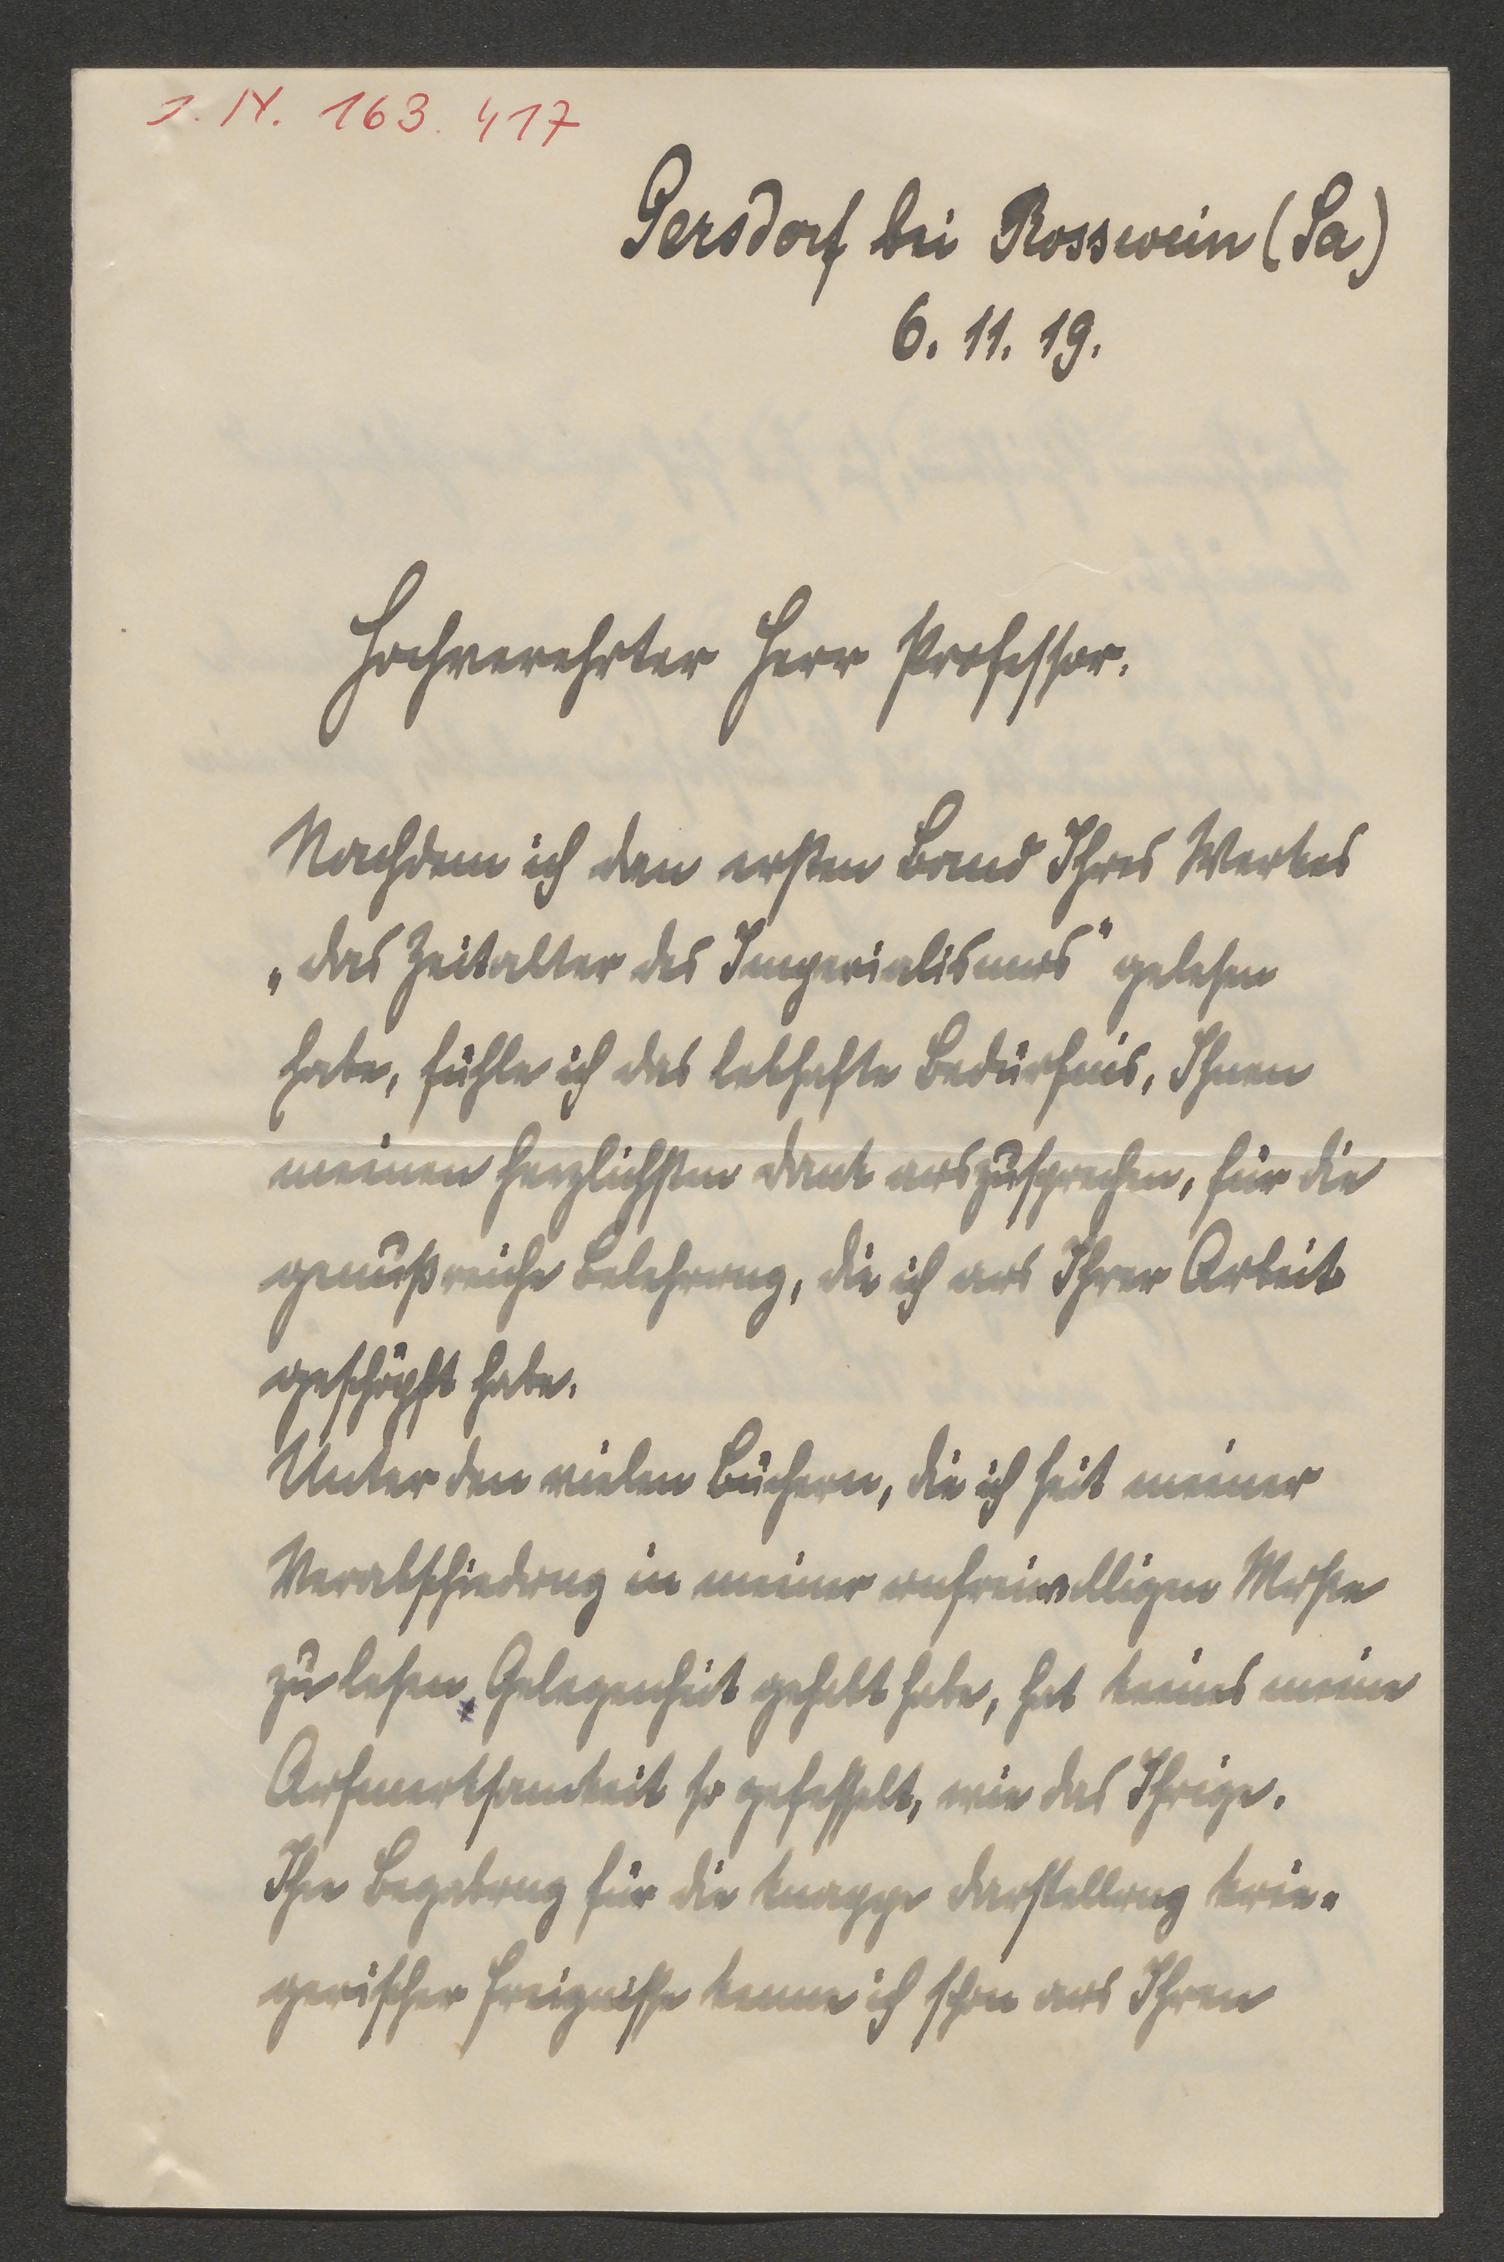 J. N. 163.417
Gersdorf bei Rosswein (Sa)
6. 11. 19.
Hochverehrter Herr Professor.
Nachdem ich den ersten Band Ihres Werkes
„das Zeitalter des Imperialismus" gelesen
habe, fühle ich das lebhafte Bedürfnis, Ihnen
meinen herzlichsten Dank auszusprechen, für die
genußreiche Belehrung, die ich aus Ihrer Arbeit
geschöpft habe.
Unter den vielen Büchern, die ich seit meiner
Verabschiedung in meiner unfreiwilligen Muße
zu lesen Gelegenheit gehabt habe, hat keines meine
Aufmerksamkeit so gefesselt, wie das Ihrige.
Ihre Begabung für die knappe Darstellung krie-
gerischer Ereignisse kenne ich schon aus Ihren